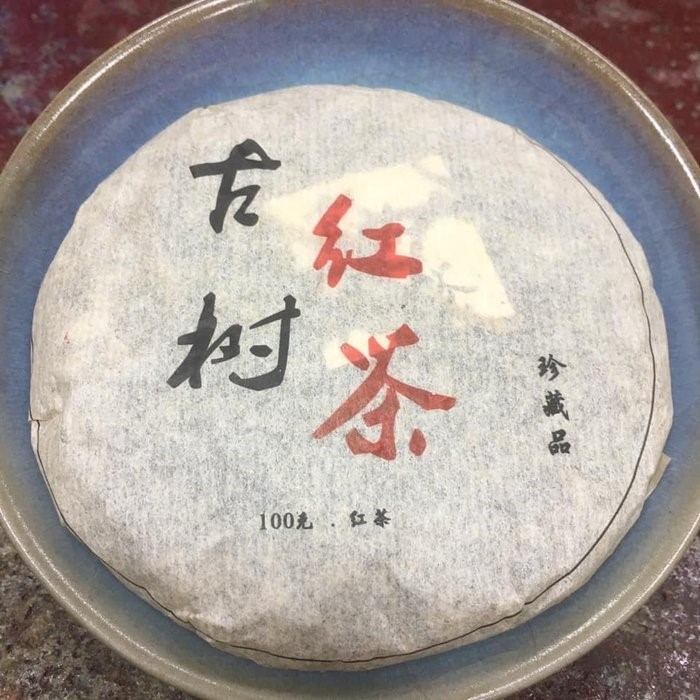 古树
红茶
珍藏品
100克 . 红茶